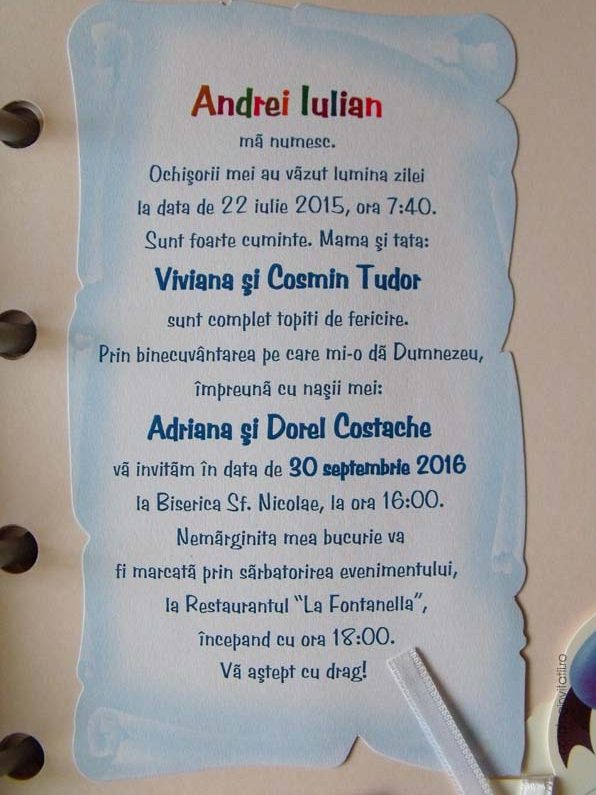 Andrei Iulian
mă numesc.
Ochişorii mei au văzut lumina zilei
la data de 22 iulie 2015, ora 7:40.
Sunt foarte cuminte. Mama şi tata:
Viviana şi Cosmin Tudor
sunt complet topiti de fericire.
Prin binecuvântarea pe care mi-o dă Dumnezeu,
împreună cu naşii mei:
Adriana şi Dorel Costache
vă invităm în data de 30 septembrie 2016
la Biserica Sf. Nicolae, la ora 16:00.
Nemărginita mea bucurie va
fi marcată prin sărbatorirea evenimentului,
la Restaurantul “La Fontanella”,
începand cu ora 18:00.
Vă aştept cu drag!